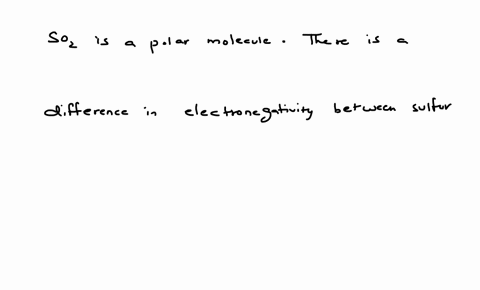 SO₂ is a polar molecule. There is a
difference in electronegativity between sulfur